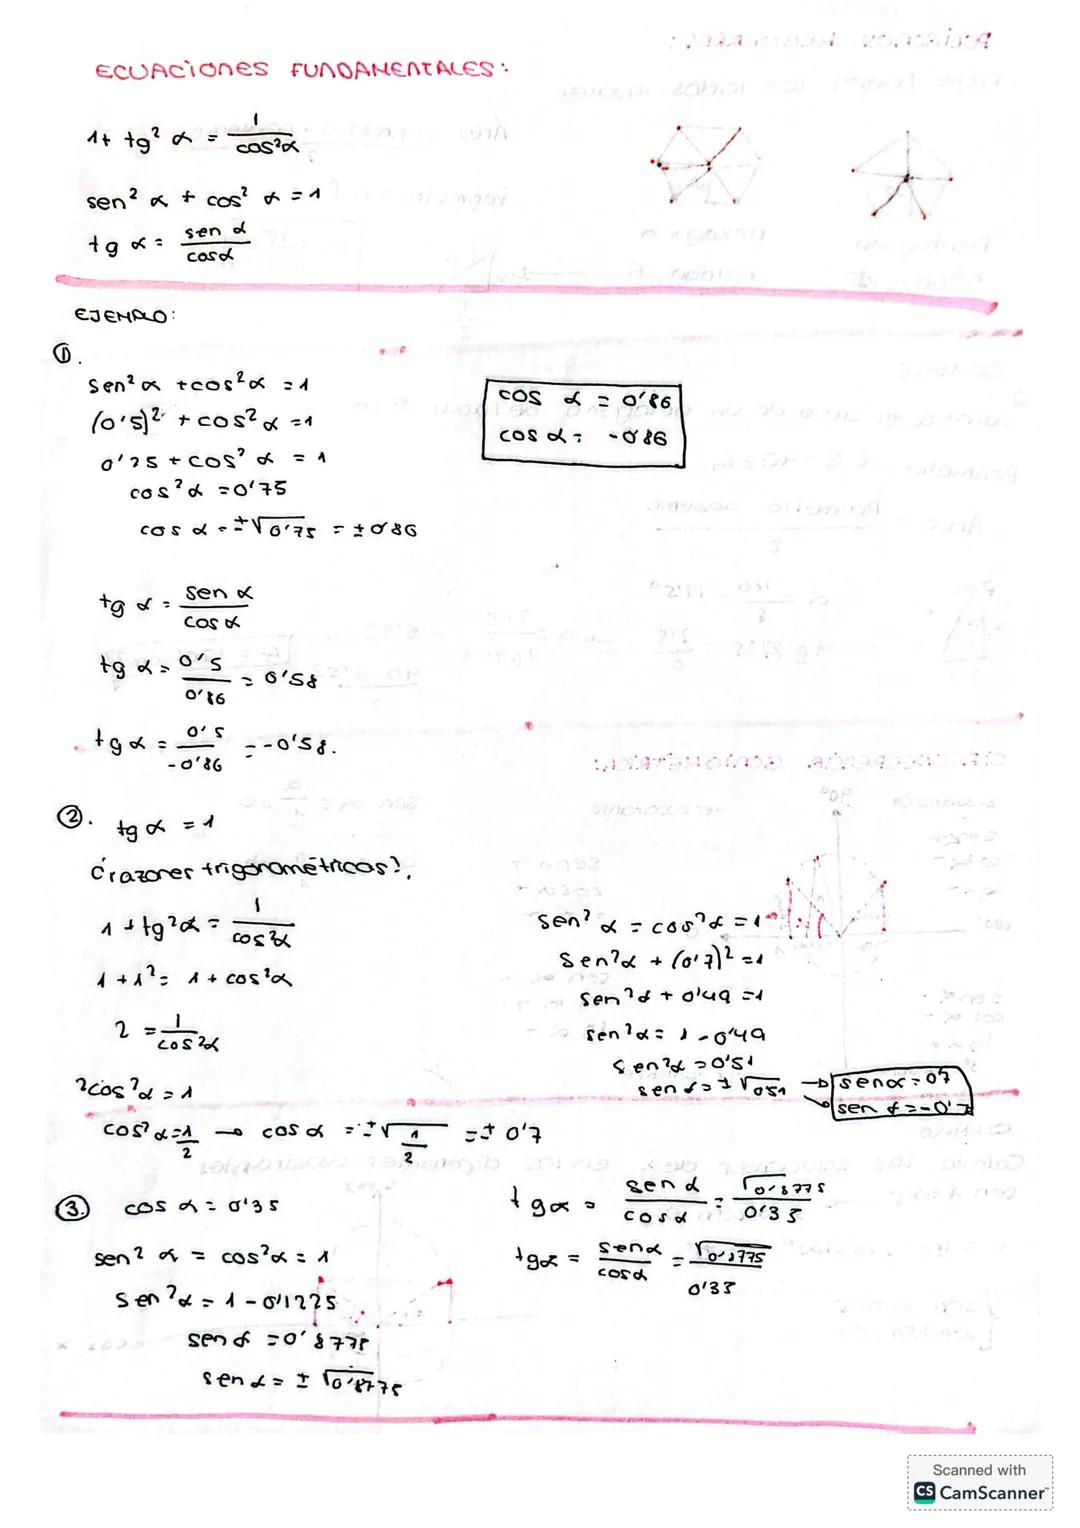 ECUACIONES FUNDAMENTALES:
1+ tg² α = 1/cos²α
sen² α + cos² α = 1
tg α = sen α/cosα
EJEMPLO:
①.
sen² α + cos² α = 1
(0'5)² + cos² α = 1
0'25 + cos² α = 1
cos² α = 0'75
cos α = ±√0'75 = ±0'86
cos α = 0'86
cos α = -0'86
tg α = sen α/cos α
tg α = 0'5/0'86 = 0'58
tg α = 0'5/-0'86 = -0'58.
②. tg α = 1
¿razones trigonométricas?
1 + tg²α = 1/cos²α
1 + 1² = 1 + cos²α
2 = 1/cos²α
2cos²α = 1
cos²α = 1/2 → cos α = ±√1/2 = ± 0'7
sen² α = cos²α = 1
sen²α + (0'7)² = 1
sen²α + 0'49 = 1
sen²α = 1 - 0'49
sen²α = 0'51
sen α = ± √051 → sen α = 07
→ sen α = -0'7
③. cos α = 0'35
sen² α = cos²α = 1
sen²α = 1 - 0'1225
sen α = 0'8775
sen α = ± √0'8775
tgα = sen α/cosα = √0'8775/0'35
tgα = senα/cosα = √0'8775/0'35
Scanned with
CS CamScanner